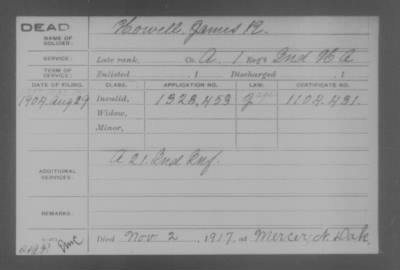 DEAD
NAME OF SOLDIER: Howell, James R.
SERVICE: Late rank, Co. A, 1 Reg't Ind H A
TERM OF SERVICE: Enlisted , 1 Discharged , 1
DATE OF FILING. CLASS. APPLICATION NO. LAW. CERTIFICATE NO.
1904 Aug 29 Invalid, 1323,453 1104,431
Widow,
Minor,
ADDITIONAL SERVICES: A 21. Ind Inf.
REMARKS:
Died Nov 2, 1917, at Mercer, N. Dak